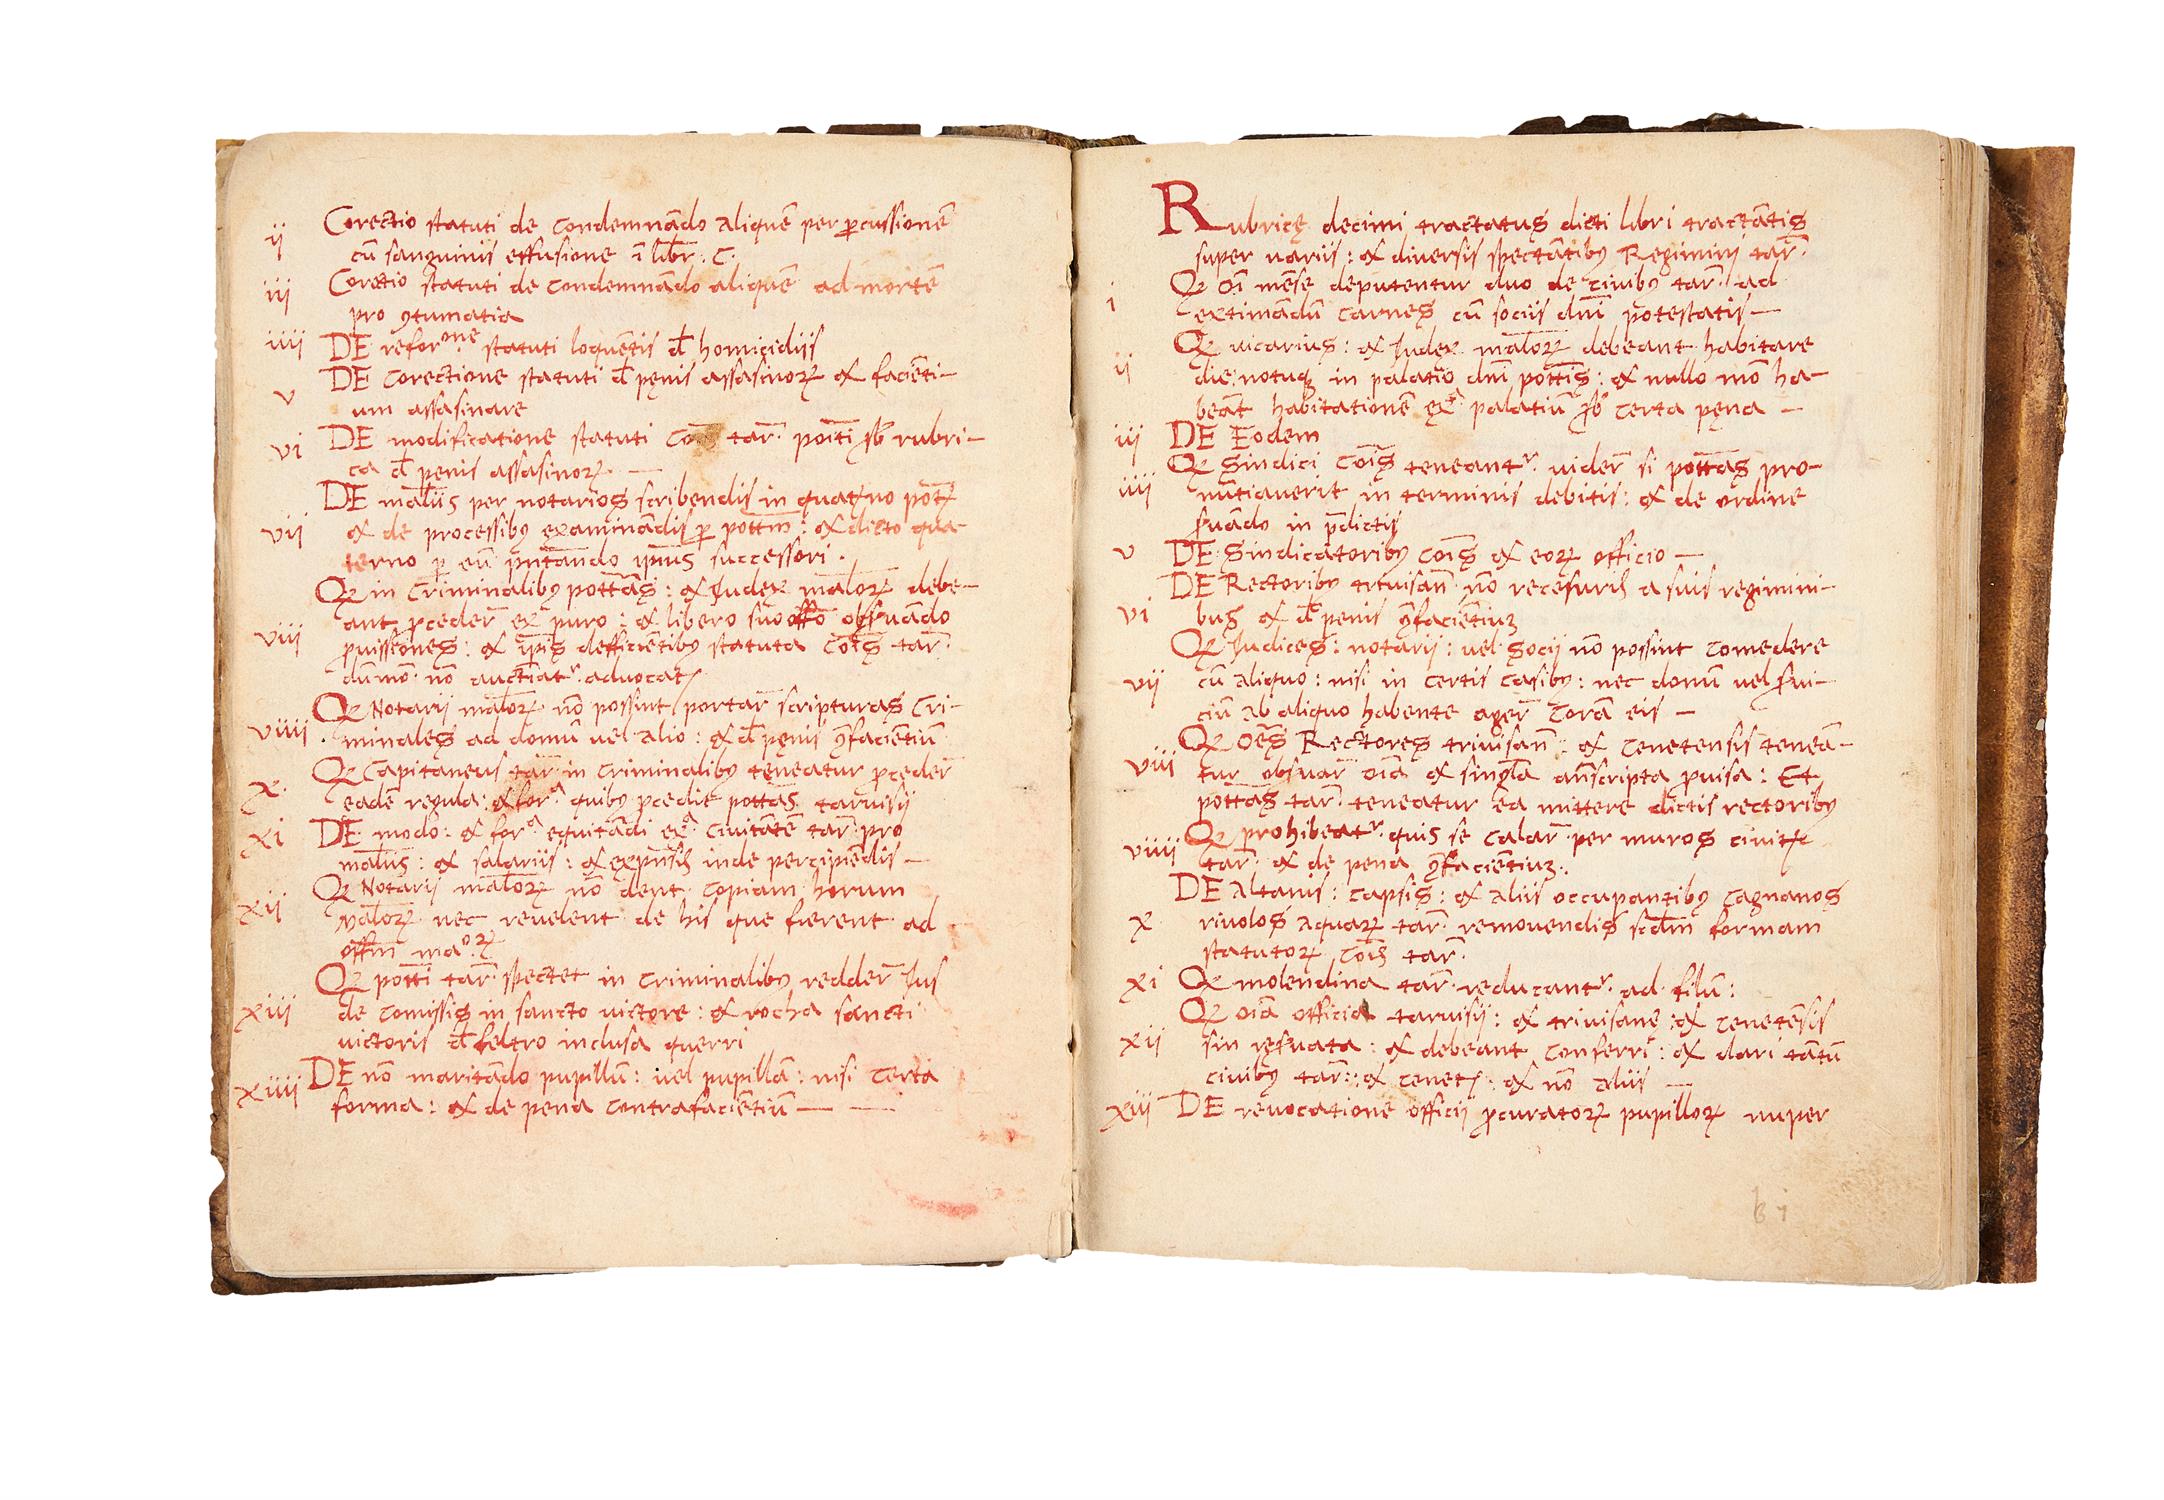 ii Corectio statuti de condemnādo aliquē per ꝑcussionē
cū sanguinis effusione ī libr̄. C.
iii Corectio statuti de condemnādo aliquē ad mortē
pro ꝯtumatia
iiii DE reforone. statuti loquētis đ homicidijs
v DE corectione statuti đ pęnis assasinoꝝ & faciēti–
um assasinare
vi DE modificatione statuti tar̄. poīti sƀ rubri–
ca đ penis assasinoꝝ —
DE maƚijs per notarios scribendis in quaterno
vii & de processibꝰ examinādis ꝑ : & dicto qua–
terno ꝑ eū p̄ntādo ip̄ius successori.
Qꝫ in criminalibꝰ pott̄as : & Iudex maƚoꝝ debe–
ant ꝓceder̄ ex puro : & libero suo offō obẜuādo
viii ꝓuisiones : & ip̄is defficiētibꝰ statuta cōis tar̄.
dūmō nō
Qꝫ Notarij maƚoꝝ nō possint portar̄ scripturas cri–
viiii minales ad domū uel alio : & đ pęnis ꝯ̄faciētiū
Qꝫ Capitaneus tar̄. in criminalibꝰ teneatur ꝓceder̄
x. eadē regula : & forᵃ. quibꝰ ꝓcedit pott̄as taruisij
xi DE modo : & forᵃ. equitādi exᵃ. ciuitātē tar̄. pro
maƚijs : & salariis : & expēsis inde percipiēdis —
Qꝫ Notarij maƚoꝝ nō dent copiam horum
xii maƚoꝝ nec reuelent de his que fierent ad
offm̄ maᵒꝝ
Qꝫ pott̄i tar̄. spectet in criminalibꝰ redder̄ Ius
xiii de comissis in sancto uictore : & rocha sancti
uictoris đ feltro inclusa querri
xiiii DE nō maritādo pupillū : uel pupillā : nisi certa
forma : & de pena contrafaciētiū — —
Rubricę decimi tractatus dicti libri tractātis
super uariis : & diuersis spectātibꝰ Regimini tar̄.
i Qꝫ oī mēse deputentur duo de ciuibꝰ tar̄. ad
extimādū carnes cū sociis dn̄i potestatis —
Qꝫ uicarius : & Iudex maƚoꝝ debeant habitare
ii die : notuqꝫ in palatio dn̄i pott̄is : & nullo mō ha–
beāt habitationē exᵃ. palatiū sƀ certa pęna —
iii DE Eodem
Qꝫ Sindici cōis teneantʳ. uider̄ si pott̄as pro–
iiii nūtiauerit in terminis debitis : & de ordine
ẜuādo in p̄dictis
v DE Sindicatoribꝰ cōis & eoꝝ officio —
DE Rectoribꝰ triuisan̄. nō a suis regimini–
vi bus & đ penis ꝯ̄faciētiuꝫ
Qꝫ Iudices : notarij : uel socij nō possint comedere
vii cū aliquo : nisi in certis casibꝰ : nec domū uel ẜui–
ciū ab aliquo habente ager̄ corā eis —
Qꝫ oēs Rectores triuisan̄. : & cenetensis teneā–
viii tur obẜuar̄ oīa & singƚa ān̄scripta ꝓuisa : Et
pott̄as tar̄. teneatur ea mittere dictis rectoribꝰ
viiii Qꝫ prohibeatʳ. quis se calar̄ per muros ciuitꝭ
tar̄. & de pena ꝯ̄faciētiuꝫ.
DE altanis : capsis : & aliis occupantibꝰ cagnanos
x riuolos aquaꝝ tar̄. remouendis scđm formam
statutoꝝ cōis tar̄.
xi Qꝫ molendina tar̄. reducantʳ. ad filū :
Qꝫ oīa officia taruisij : & triuisanę : & cenetēsis
xii sin reẜuata : & debeant conferri : & dari tātū
ciuibꝰ tar̄. : & cenetꝭ : & nō aliis —
xiii DE reuocatione officij ꝓcuratoꝝ pupilloꝝ nuper
b i